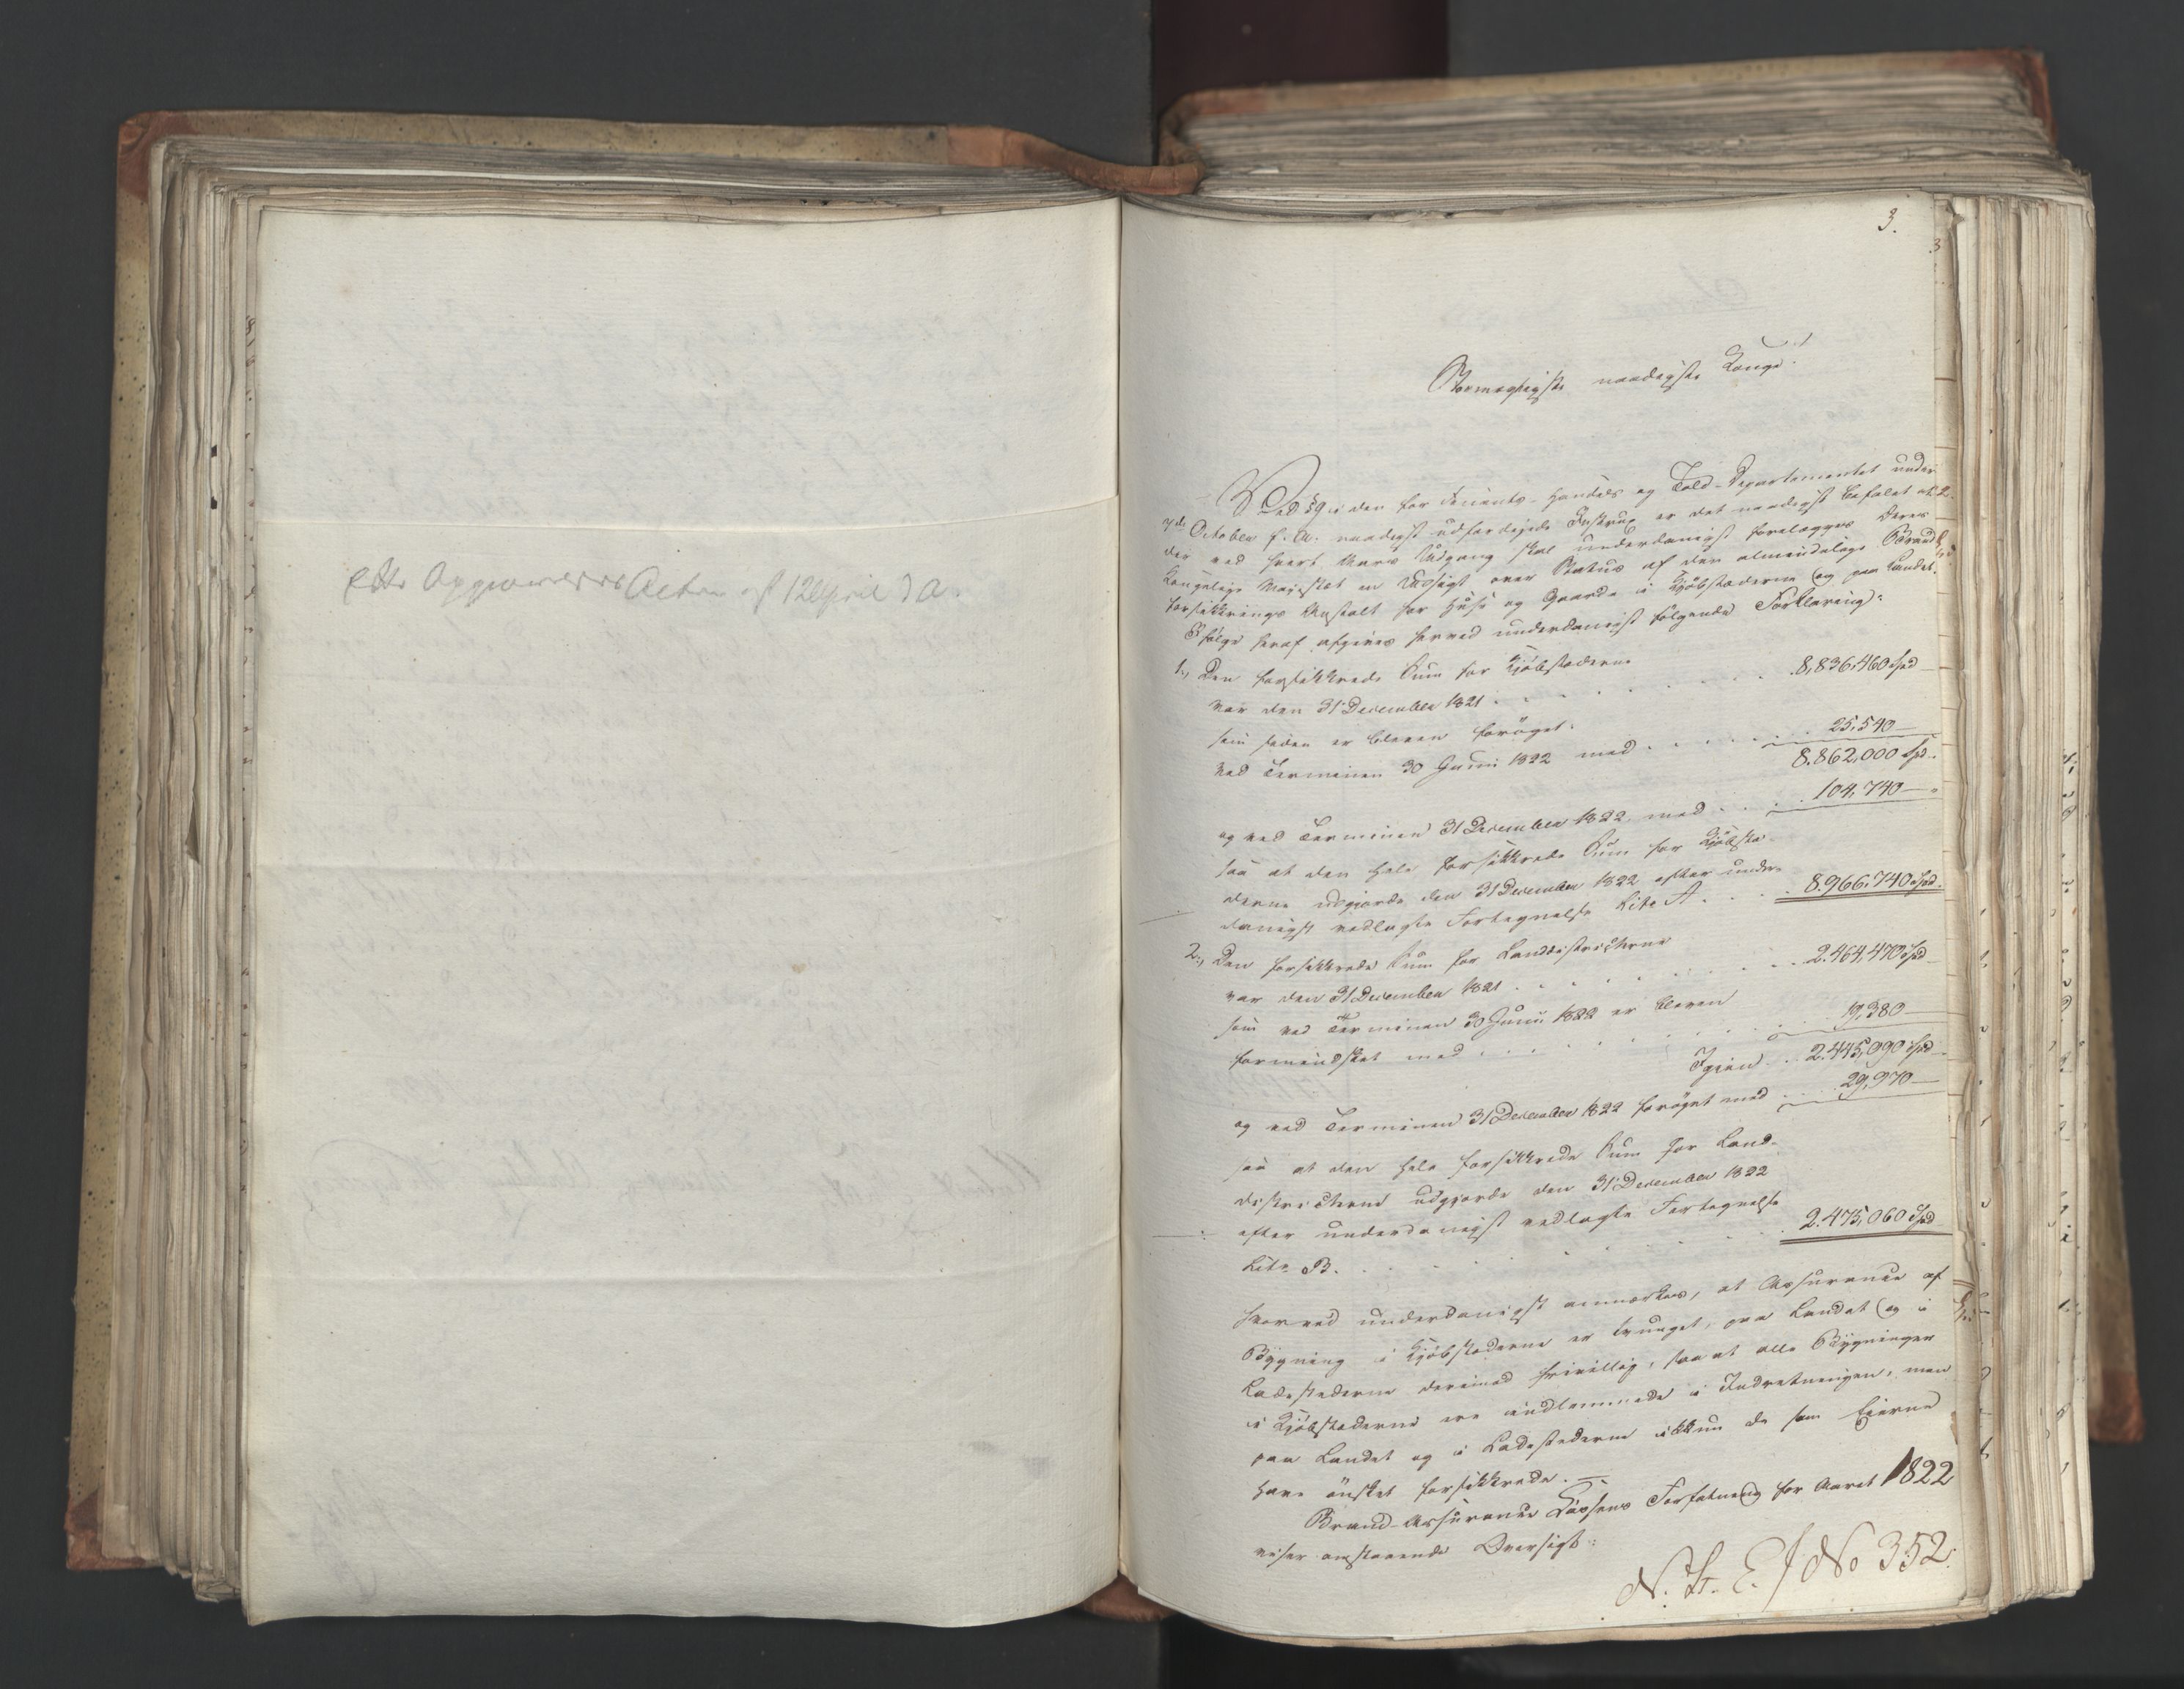 Actr. af 12 April d A.
3.
Stormægtigste naadigste Konge!
Ved § 9 i den for Finants- Handels og Told-Departementet under
7de October f. A. naadigst udfærdigede Instrux er det naadigst befalet at
der ved hvert Aars Udgang skal underdanigst forelægges Deres
Kongelige Majestæt en Udsigt over Status af den almindelige Brand
forsikkrings Anstalt for Huse og Gaarde i Kjöbstæderne og paa Landet.
I fölge heraf afgives herved underdanigst fölgende Forklaring:
1., Den forsikkrede Sum for Kjöbstæderne
var den 31 December 1821 . . . . . 8,836,460 Spd
som siden er bleven foröget:
ved Terminen 30 Junii 1822 med . . . . . 25,540 —
8.862,000 Spd.
og ved Terminen 31 December 1822 med . . . . 104,740 — "
saa at den hele forsikkrede Sum for Kjöbstæ-
derne udgjorde den 31 December 1822 efter under-
danigst vedlagte Fortegnelse Litr A. . . . 8.966.740 Spd.
2., Den forsikkrede Sum for Landdistricterne
var den 31 December 1821 . . . . . 2.464,470 Spd
som ved Terminen 30 Junii 1822 er bleven
formindsket med . . . . . 19,380 —
Igjen . . 2.445,090 Spd
og ved Terminen 31 December 1822 foröget med . . . 29,970 —
saa at den hele forsikkrede Sum for Land-
districterne udgjorde den 31 December 1822
efter underdanigst vedlagte Fortegnelse
Litr B. . . . . . 2.475,060 Spd
Herved underdanigst anmærkes, at Assurance af
Bygning i Kjöbstæderne er tvungen, paa Landet og i
Ladestæderne derimod frivillig, saa at alle Bygninger
i Kjöbstæderne ere indlemmede i Indretningen, men
paa Landet og i Ladestæderne ikkun de som Eierne
have önsket forsikkrede. —
Brand-Assurance Cassens Forfatning for Aaret 1822
viser anstaaende Oversigt:
N. St. E. J No 352.